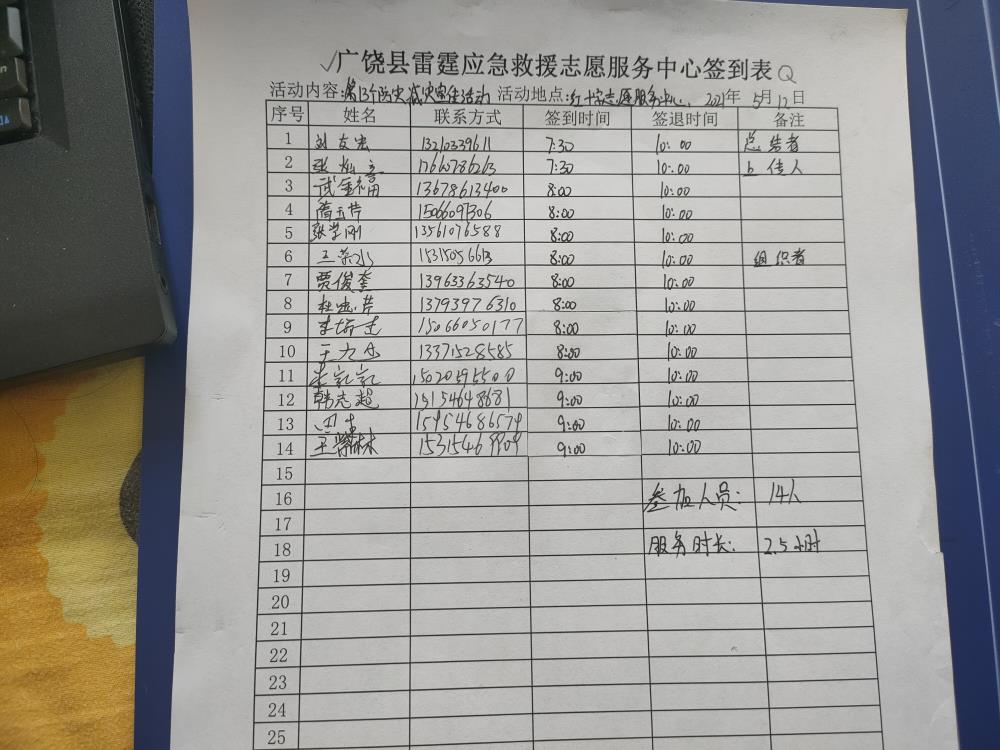 √广饶县雷霆应急救援志愿服务中心签到表Q
活动内容:第13个防灾减灾宣传活动 活动地点:红十字志愿服务中心. 2021年5月12日
序号 姓名 联系方式 签到时间 签退时间 备注
1 刘友宏 13210339611 7:30 10:00 总结者
2 张灿亮 17660786263 7:30 10:00 上传人
3 武金福 13678613400 8:00 10:00
4 蔄玉芹 15066097306 8:00 10:00
5 张学刚 13561076588 8:00 10:00
6 王荣水 15315056613 8:00 10:00 组织者
7 贾俊奎 13963363540 8:00 10:00
8 杜 芹 13793976310 8:00 10:00
9 李 15066050177 8:00 10:00
10 王 13371528585 8:00 10:00
11 9:00 10:00
12 韩志超 15154648681 9:00 10:00
13 15954686579 9:00 10:00
14 王 林 9:00 10:00
15
16 参加人员: 14人
17
18 服务时长: 2.5小时
19
20
21
22
23
24
25